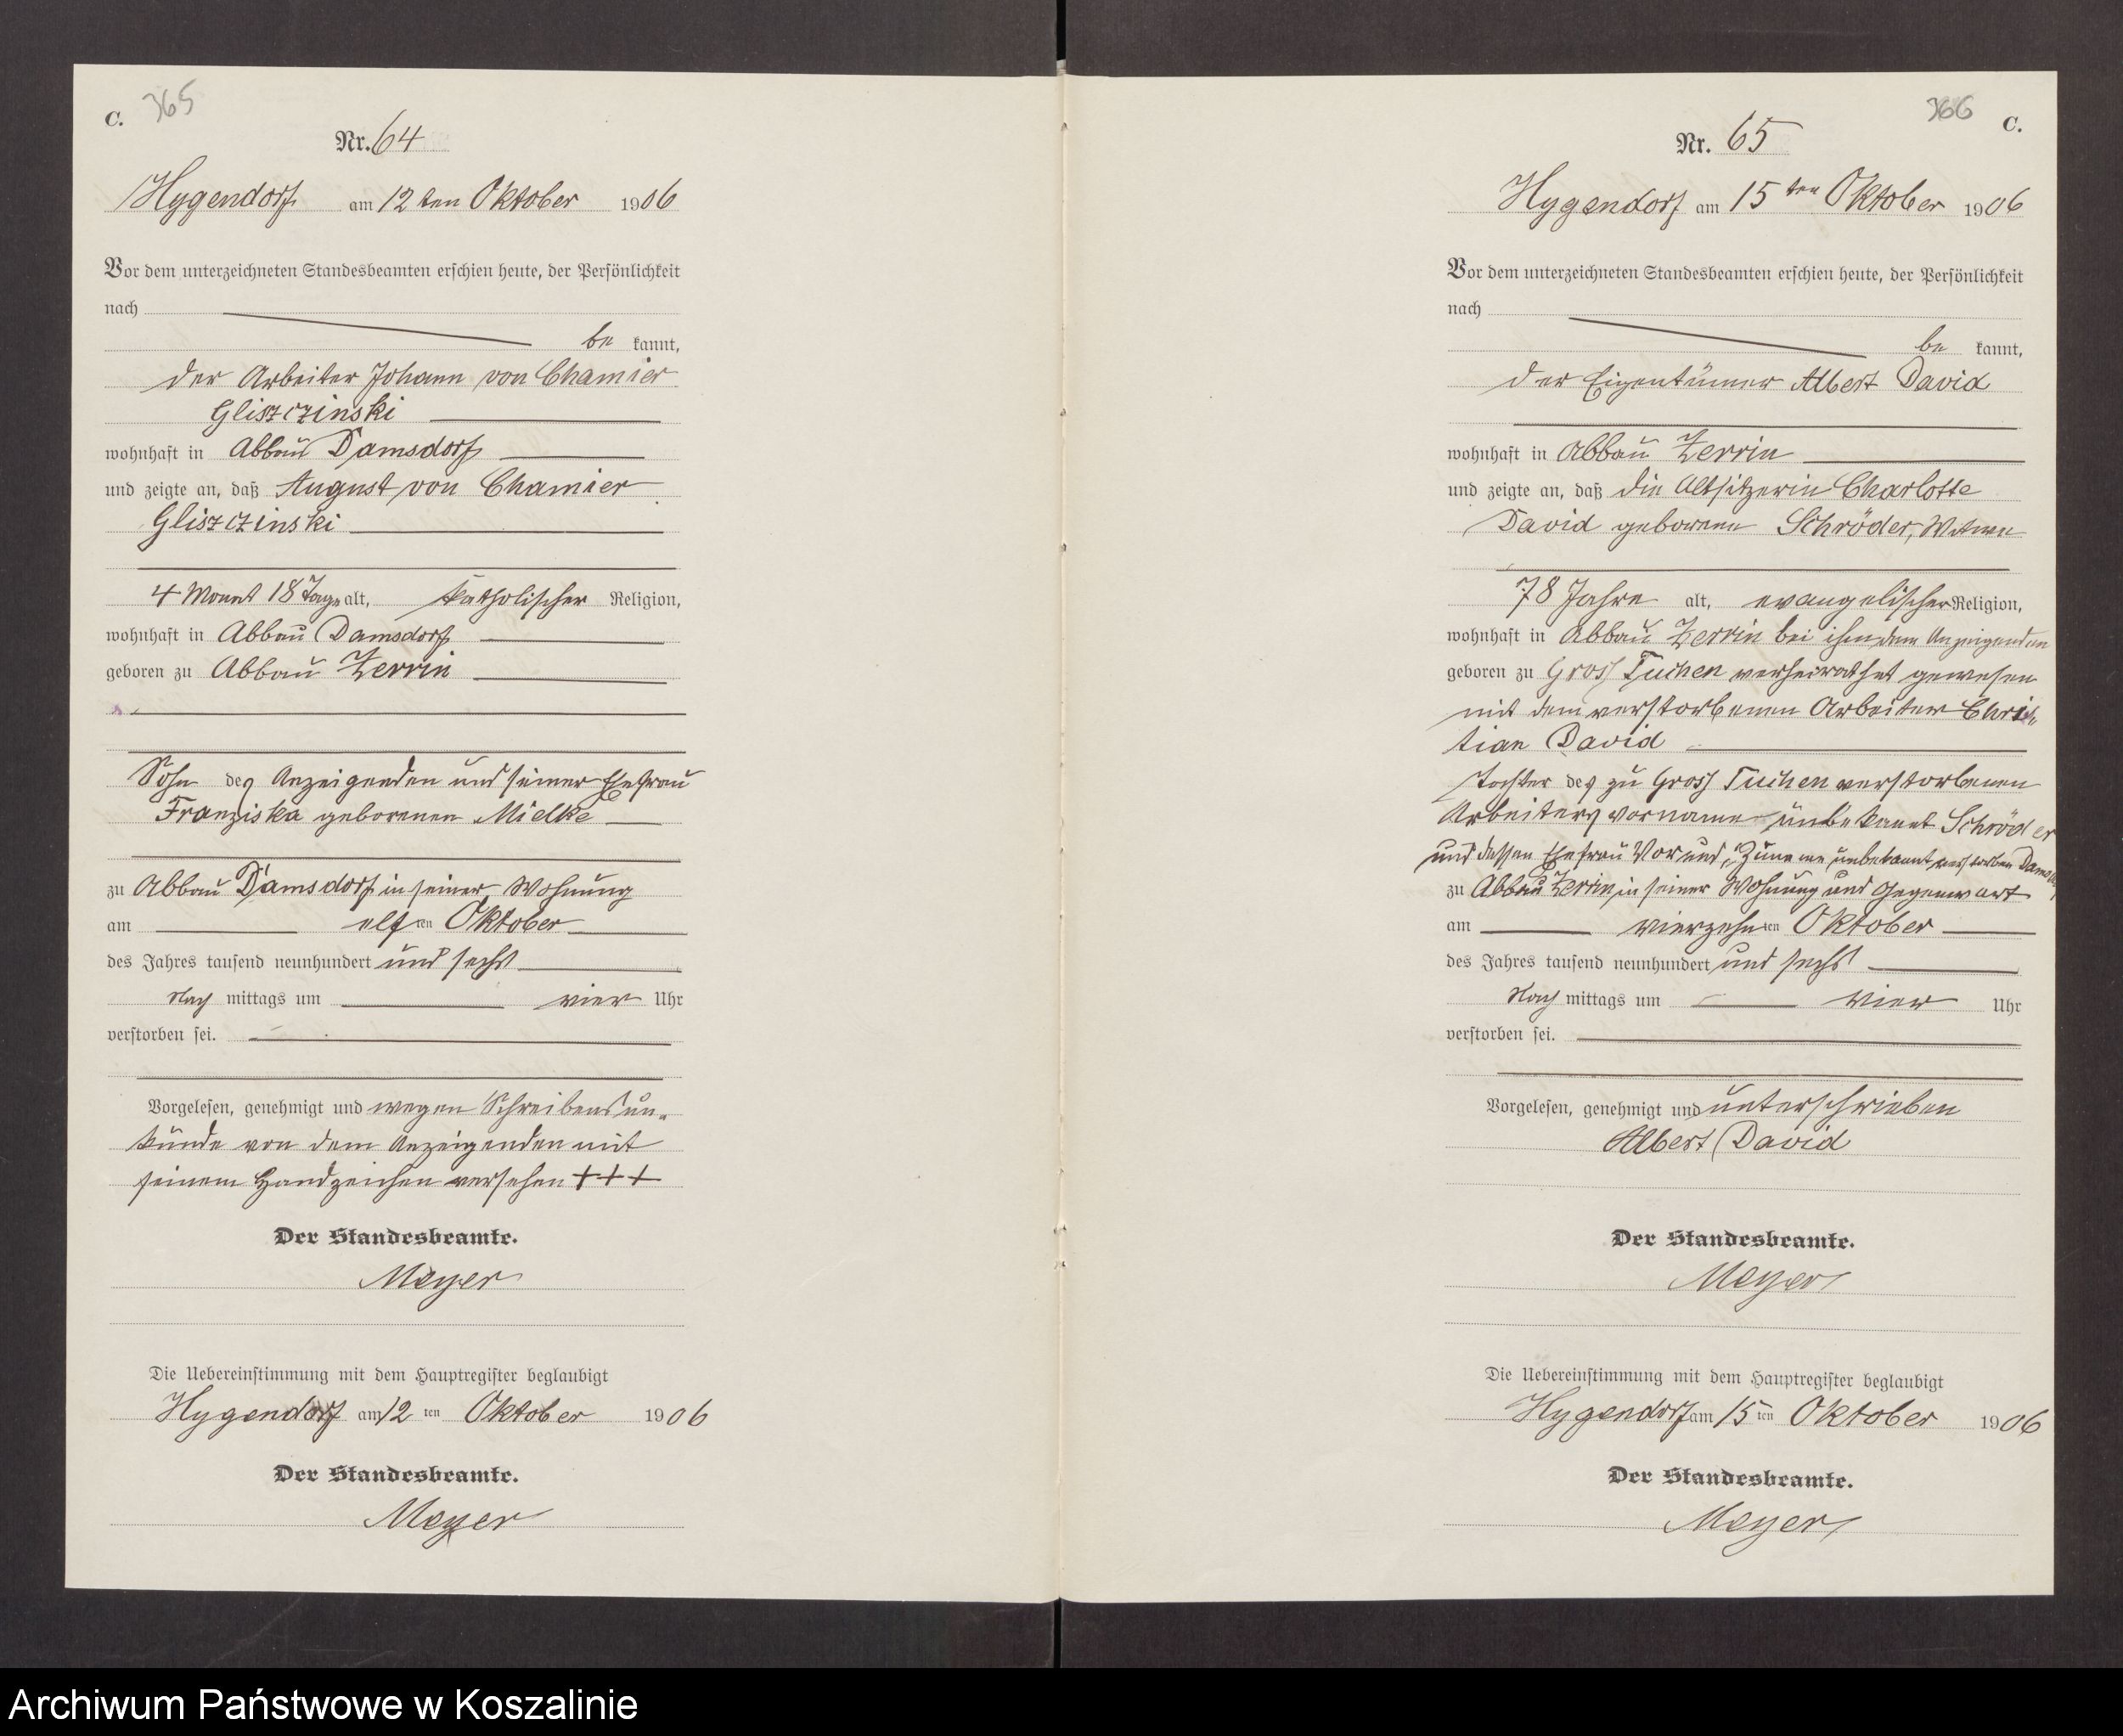 C. 365
Nr. 64
Hygendorf am 12ten Oktober 1906
Vor dem unterzeichneten Standesbeamten erschien heute, der Persönlichkeit
nach
be kannt,
der Arbeiter Johann von Chamier
Gliszczinski
wohnhaft in Abbau Damsdorf
und zeigte an, daß August von Chamier
Gliszczinski
4 Monat 18 Tage alt, katholischer Religion,
wohnhaft in Abbau Damsdorf
geboren zu Abbau Zerrin
Sohn des Anzeigenden und seiner Ehefrau
Franziska geborenen Mielke
zu Abbau Damsdorf in seiner Wohnung
am elften Oktober
des Jahres tausend neunhundert und sechs
Nach mittags um vier Uhr
verstorben sei.
Vorgelesen, genehmigt und wegen Schreibensun-
kunde von dem Anzeigenden mit
seinem Handzeichen versehen +++
Der Standesbeamte.
Meyer
Die Uebereinstimmung mit dem Hauptregister beglaubigt
Hygendorf am 12ten Oktober 1906
Der Standesbeamte.
Meyer
366 C.
Nr. 65
Hygendorf am 15ten Oktober 1906
Vor dem unterzeichneten Standesbeamten erschien heute, der Persönlichkeit
nach
be kannt,
der Eigentümer Albert David
wohnhaft in Abbau Zerrin
und zeigte an, daß die Altsitzerin Charlotte
David geborene Schröder, Witwe
78 Jahre alt, evangelischer Religion,
wohnhaft in Abbau Zerrin bei ihm dem Anzeigenden
geboren zu Gross Tuchen verheirathet gewesen
mit dem verstorbenen Arbeiter Chris-
tian David
Tochter des zu Gross Tuchen verstorbenen
Arbeiters vorname unbekannt Schröder
und dessen Ehefrau Vor und Zuname unbekannt verstorben
zu Abbau Zerrin in seiner Wohnung und Gegenwart
am vierzehnten Oktober
des Jahres tausend neunhundert und sechs
Nach mittags um vier Uhr
verstorben sei.
Vorgelesen, genehmigt und unterschrieben
Albert David
Der Standesbeamte.
Meyer
Die Uebereinstimmung mit dem Hauptregister beglaubigt
Hygendorf am 15ten Oktober 1906
Der Standesbeamte.
Meyer
Archiwum Państwowe w Koszalinie